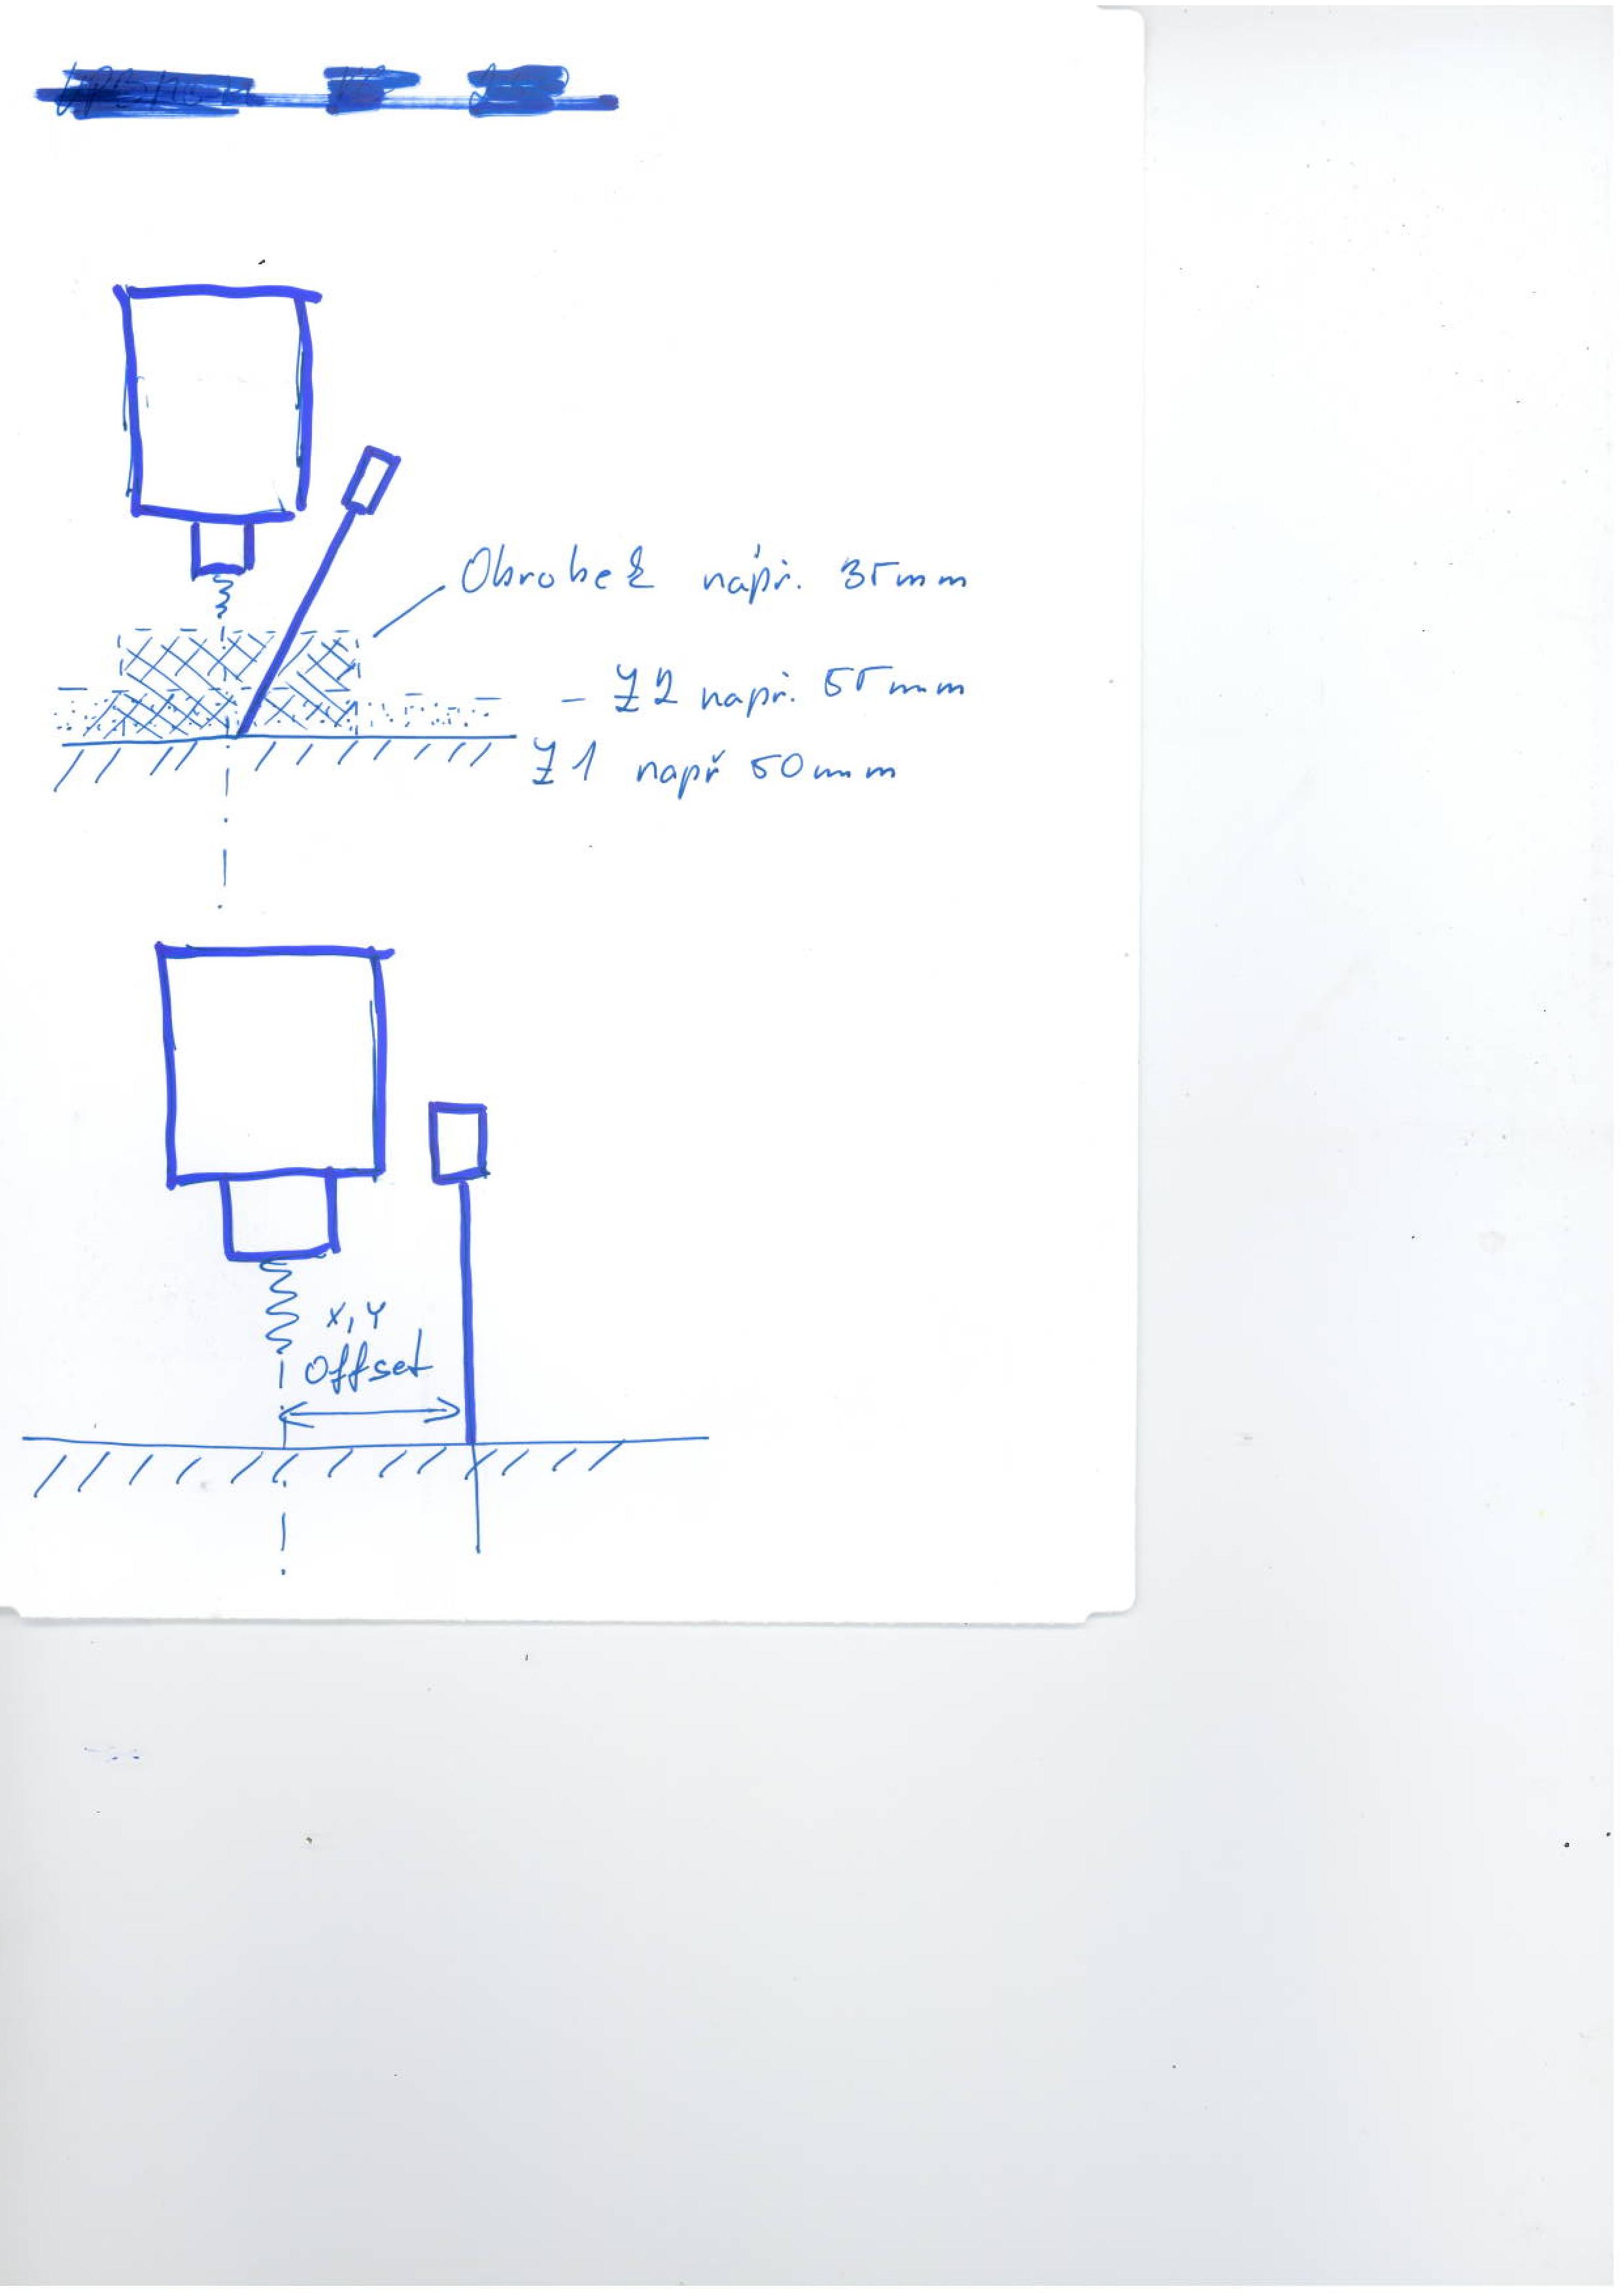 Obrobek např. 35mm
- Z2 např. 55mm
Z1 např 50mm
x, y
Offset